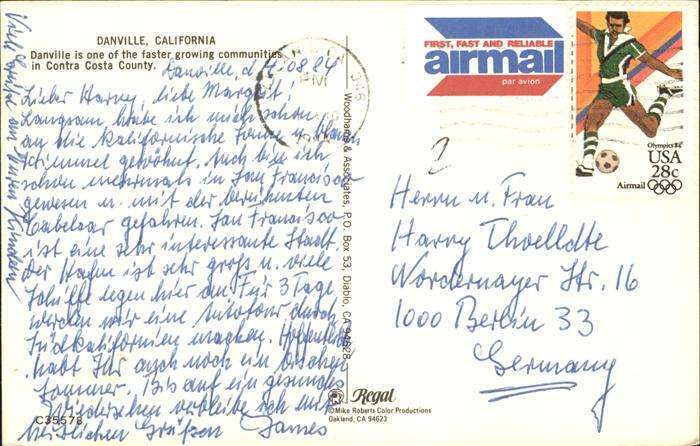 DANVILLE, CALIFORNIA
Danville is one of the faster growing communities
in Contra Costa County.
Danville, d. 4.08.84
Lieber Harry, liebe Margrit!
Langsam habe ich mich schon
an die kalifornische Sonne u.
Himmel gewöhnt. Auch bin ich
schon mehrmals in San Francisco
gewesen u. mit der berühmten
Cabelcar gefahren. San Francisco
ist eine sehr interessante Stadt.
Der Hafen ist sehr groß u. viele
Schiffe legen hier an. Für 3 Tage
werden wir eine Autotour durch
Südkalifornien machen. Hoffentlich
habt Ihr auch noch ein bischen
Sommer. Bis auf ein gesundes
Wiedersehen verbleibe ich mit
herzlichen Grüßen James
Viele Grüße an Euren
C35578
Woodhams & Associates, P.O. Box 53, Diablo, CA 94528
Regal
©Mike Roberts Color Productions
Oakland, CA 94623
FIRST, FAST AND RELIABLE
airmail
par avion
Olympics 84
USA
28c
Airmail
PM
946
2
Herrn u. Frau
Harry Thoelldte
Nordernayer Str. 16
1000 Berlin 33
Germany